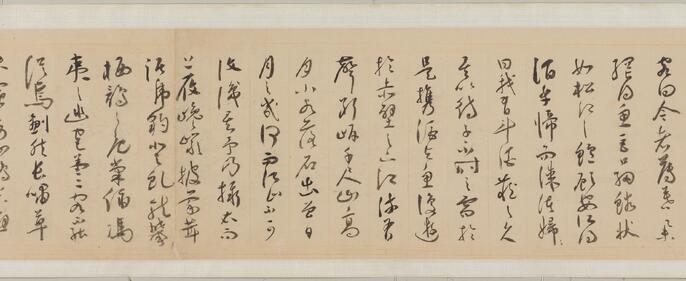 客曰今者薄暮舉
網得魚巨口細鱗狀
如松江之鱸顧安所得
酒乎歸而謀諸婦婦
曰我有斗酒藏之久
矣以待子不時之需於
是攜酒與魚復遊
於赤壁之下江流有
聲斷岸千尺山高
月小水落石出曾日
月之幾何而江山不可
復識矣予乃攝衣而
上履巉巖披蒙茸
踞虎豹登虬龍攀
棲鶻之危巢俯馮
夷之幽宮蓋二客不能
從焉劃然長嘯草